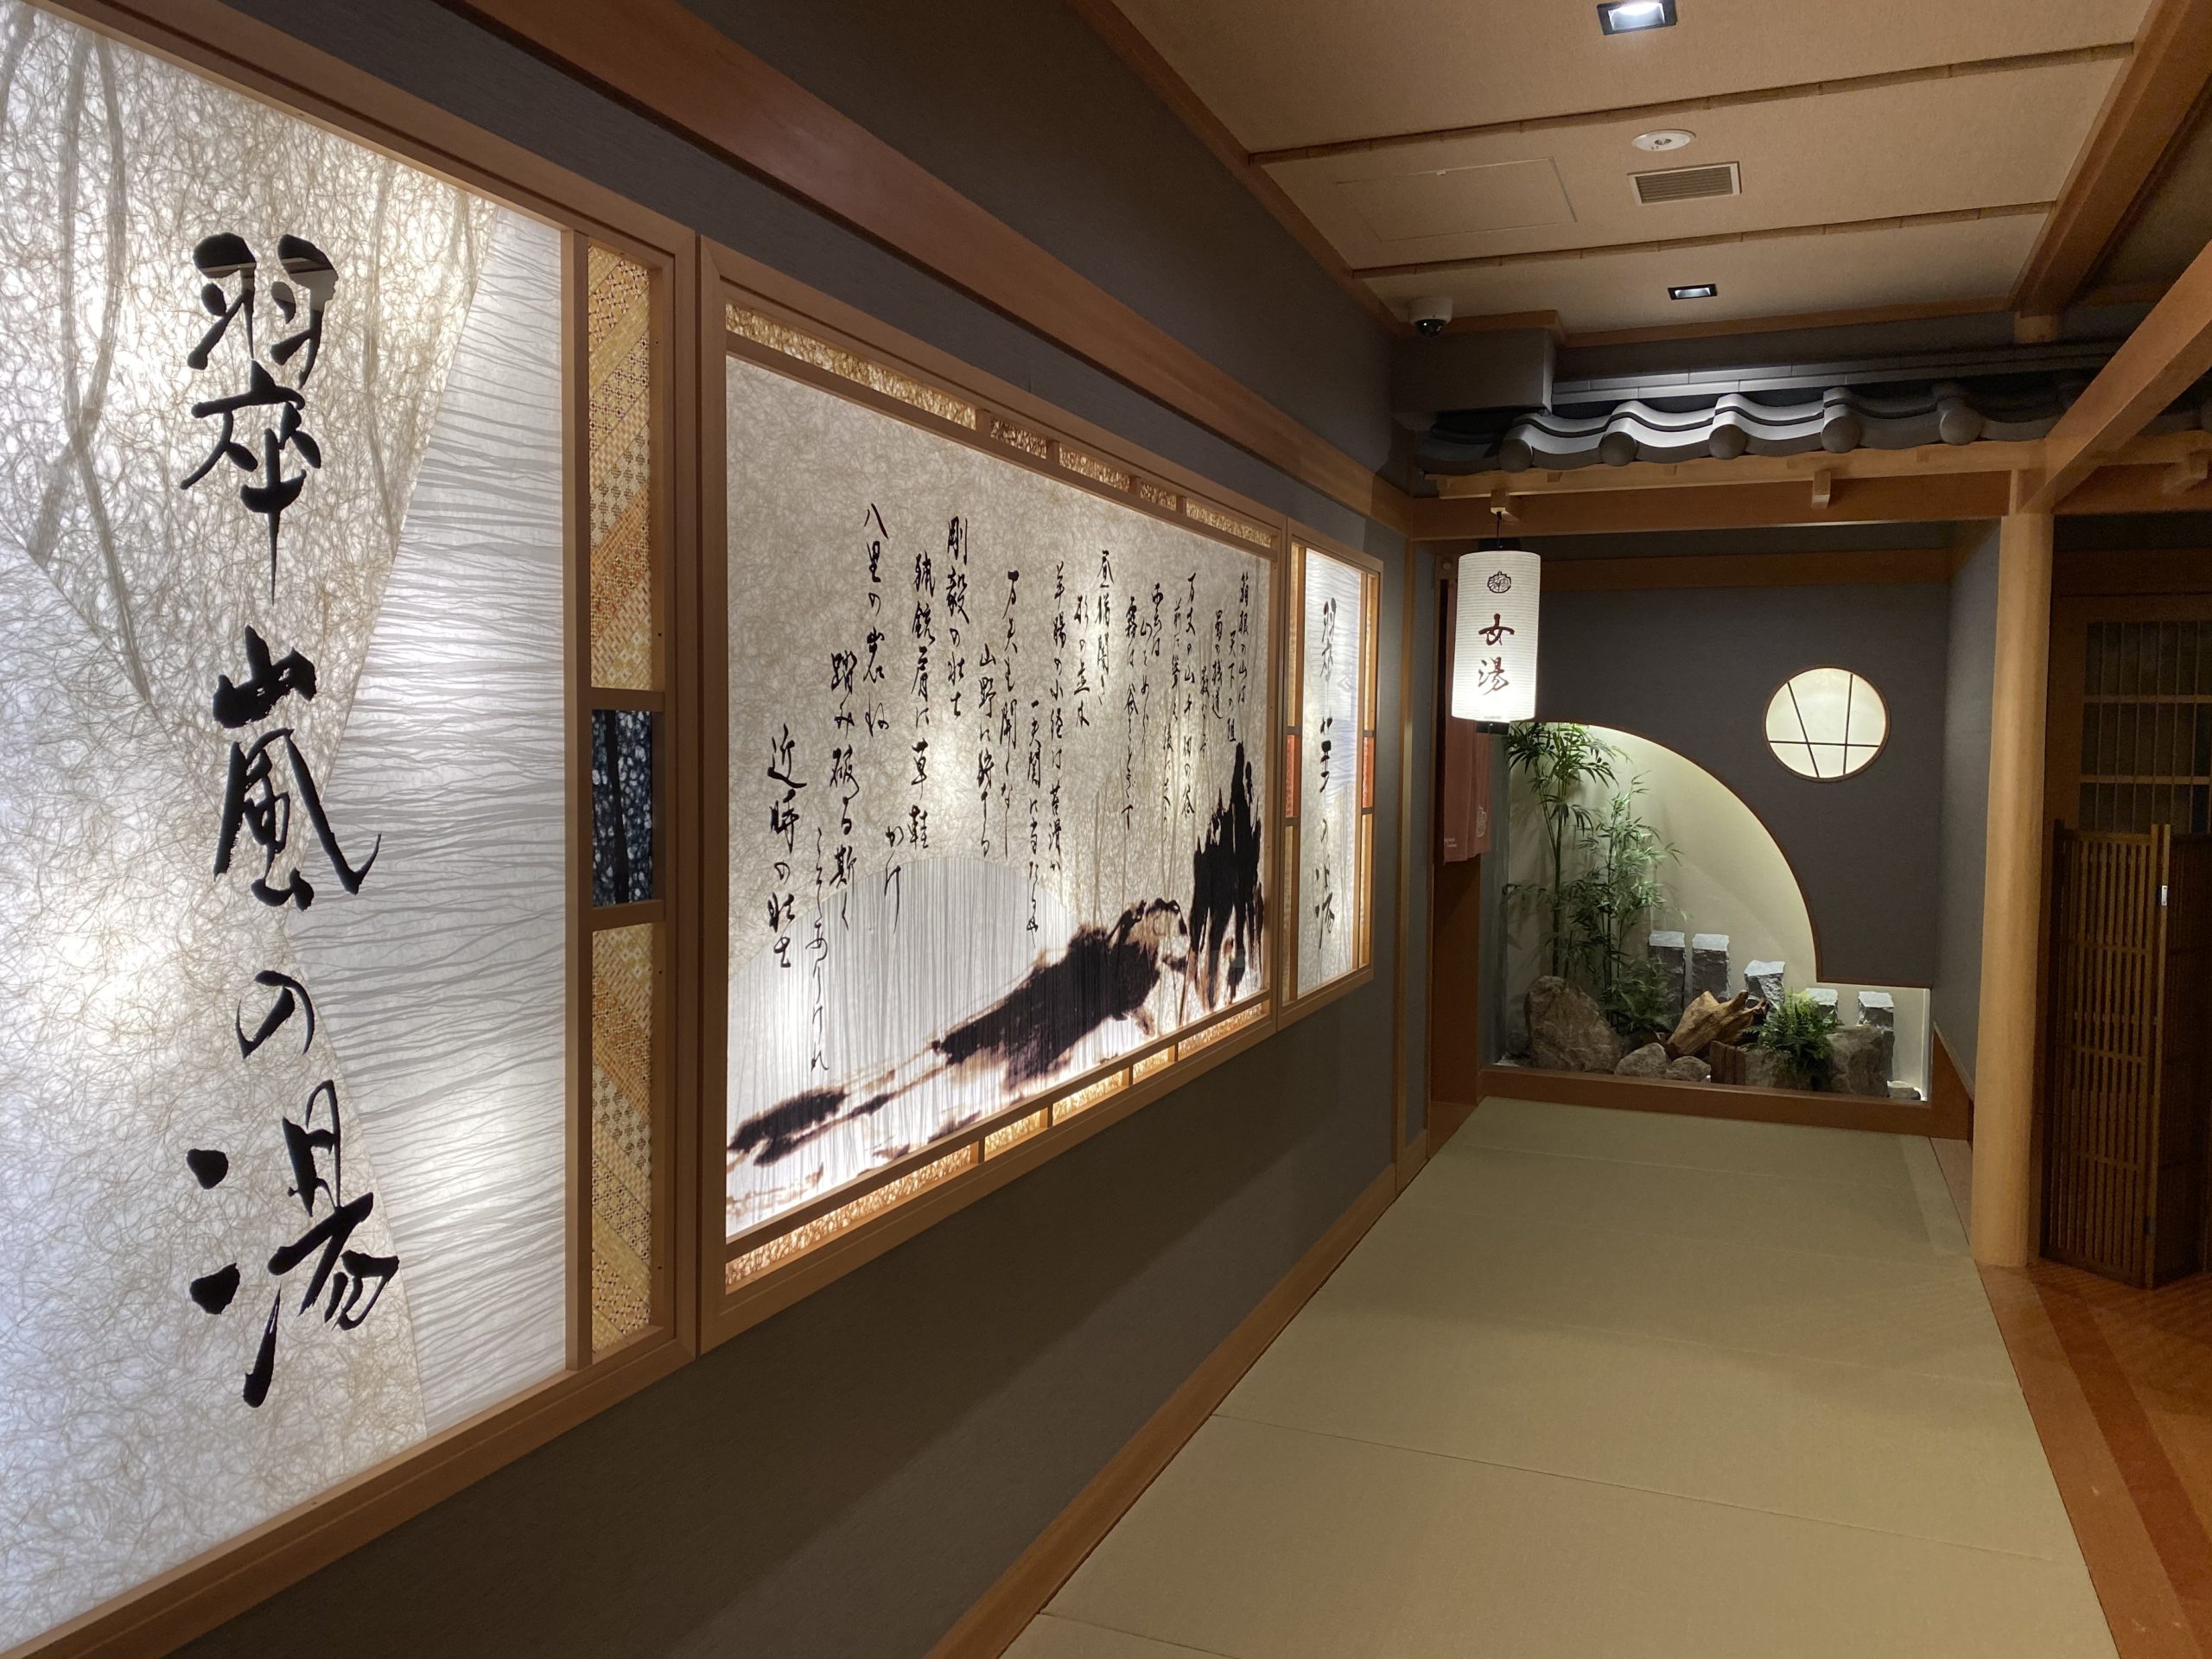 翠嵐の湯
箱根の山は
天下の阻
蜀の桟道
数ならず
万丈の山 千仞の谷
前に聳え 後に支う
雲は
山をめぐり
霧は谷をとざす
昼猶闇き
杉の並木
羊腸の小径は苔滑か
一夫関に当るや
万夫も開くなし
山野に狩する
剛毅の壮士
猟銃肩に草鞋
かけ
八里の岩ね
踏み破る斯く
こそありけれ
近時の壮士
の湯
女湯